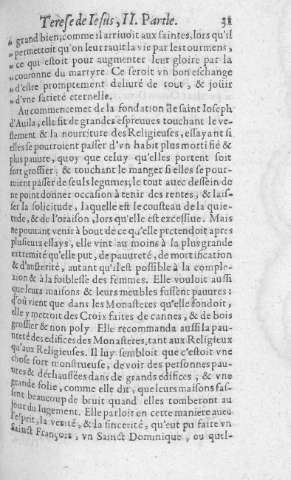 Terese de Iesus, II. Partie. 38
grand bien, comme il arriuoit aux saintes, lors qu'il
permettoit qu'on leur rauit la vie par les tourmens,
ce qui estoit pour augmenter leur gloire par la
couronne du martyre. Ce seroit vn bon eschange
d'estre promptement deliuré de tout, & jouïr
d'vne satieté eternelle.
Au commencemēt de la fondation de saint Ioseph
d'Auila, elle fit de grandes espreuues touchant le ve-
stement & la nourriture des Religieuses, essayant si
elles se pourroient passer d'vn habit plus mortifié &
plus pauure, quoy que celuy qu'elles portent soit
fort grossier; & touchant le manger si elles se pour-
roient passer de seuls legumes; le tout auec dessein de
ne point donner occasion à tenir des rentes, & lais-
ser la solicitude, laquelle est le cousteau de la quie-
tude, & de l'oraison, lors qu'elle est excessiue. Mais
ne pouuant venir à bout de ce qu'elle pretendoit apres
plusieurs essays, elle vint au moins à la plus grande
extremité qu'elle put, de pauureté, de mortification
& d'austerité, autant qu'il est possible à la comple-
xion & à la foiblesse des femmes. Elle vouloit aussi
que leurs maisons & leurs meubles fussent pauures:
d'où vient que dans les Monasteres qu'elle fondoit,
elle y mettoit des Croix faites de cannes, & de bois
grossier & non poly. Elle recommanda aussi la pau-
ureté des edifices des Monasteres, tant aux Religieux
qu'aux Religieuses. Il luy sembloit que c'estoit vne
chose fort monstrueuse, de voir des personnes pau-
ures & déchaussées dans de grands edifices, & vne
grande folie, comme elle dit, que leurs maisons fas-
sent beaucoup de bruit quand elles tomberont au
jour du Iugement. Elle parloit en cette maniere auec
l'esprit, la verité, & la sincerité, qu'eut pu faire vn
Sainct François, vn Sainct Dominique, ou quel-